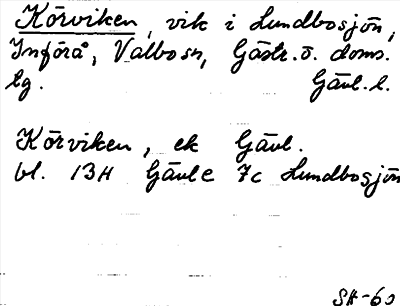 Körviken, vik i Lundbosjön,
Införå, Valbo sn, Gästr. ö. doms.
lg. Gävl. l.
Körviken, ek Gävl.
bl. 13H Gävle 7c Lundbosjön
SH-60